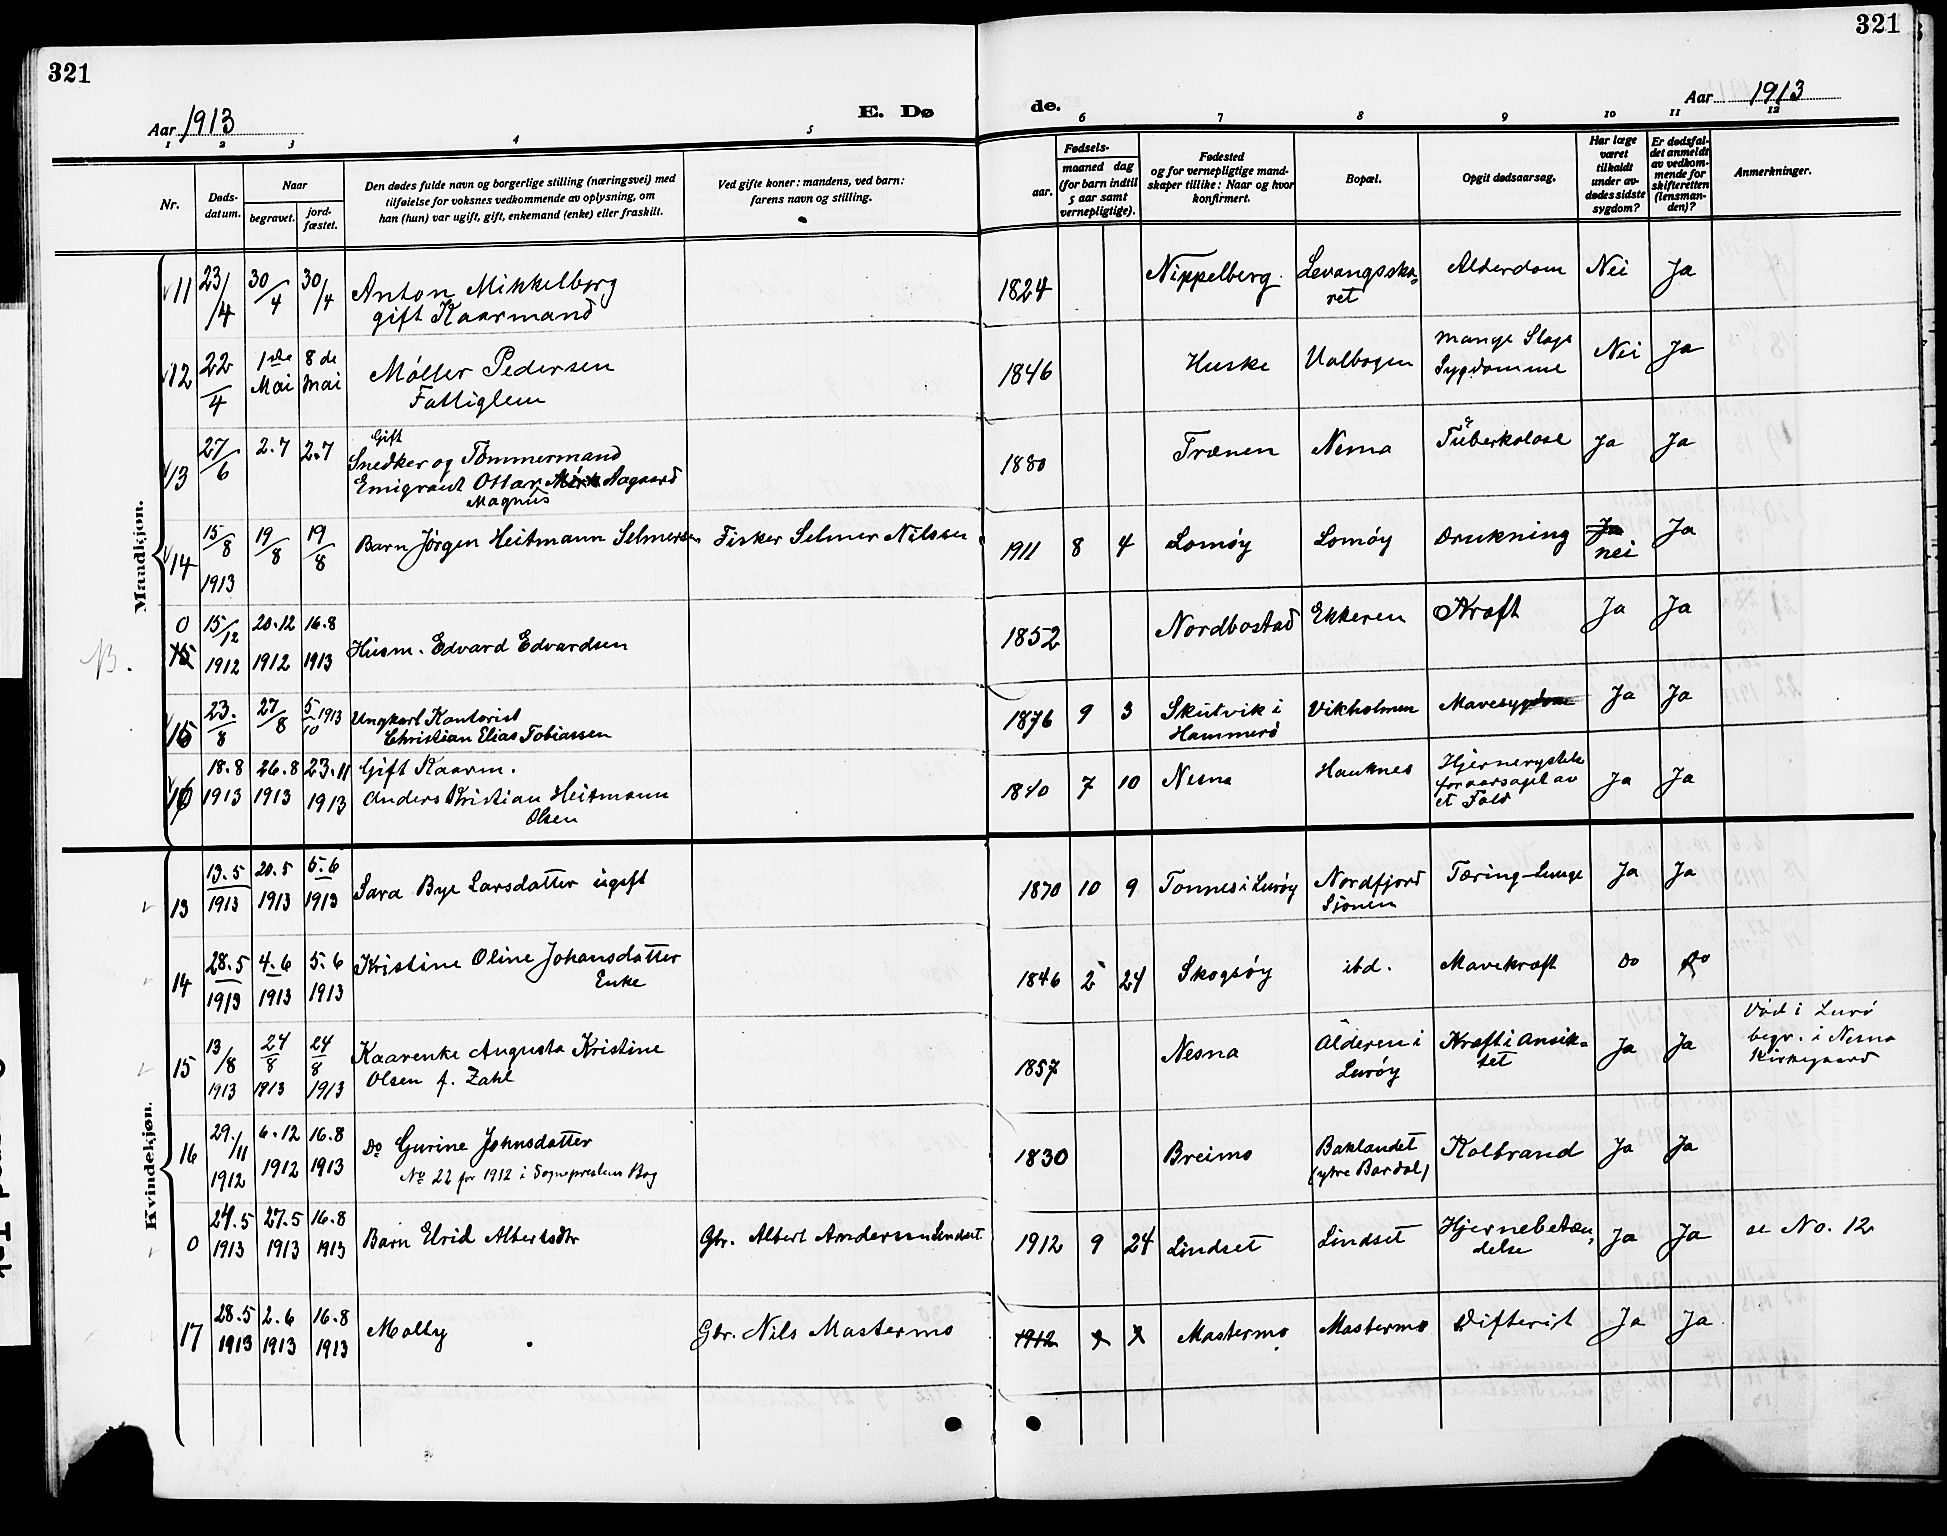 321
321
Aar 1913
E. Dø
de.
Aar 1913
1 2 3 4 5 6 7 8 9 10 11 12
Nr.
Døds-
datum.
Naar
begravet.
jord-
fæstet.
Den dødes fulde navn og borgerlige stilling (næringsvei) med
tilføielse for voksnes vedkommende av oplysning, om
han (hun) var ugift, gift, enkemand (enke) eller fraskilt.
Ved gifte koner: mandens, ved barn:
farens navn og stilling.
Fødsels-
aar.
maaned dag
(for barn indtil
5 aar samt
vernepligtige).
Fødested
og for vernepligtige mand-
skaper tillike: Naar og hvor
konfirmert.
Bopæl.
Opgit dødsaarsag.
Har læge
været
tilkaldt
under av-
dødes sidste
sygdom?
Er dødsfal-
det anmeldt
av vedkom-
mende for
skifteretten
(lensman-
den)?
Anmerkninger.
Mandkjøn.
11 23/4 30/4 30/4 Anton Mikkelborg
gift Kaarmand
1824 Nippelberg Levangsska-
ret
Alderdom Nei Ja
12 22/4 1ste Mai 8de Mai Møller Pedersen
Fattiglem
1846 Huske Valbogen mange Slags
Sygdomme
Nei Ja
13 27/6 2.7 2.7 Gift
Snedker og Tømmermand
Emigrant Ottar Aagaard
Magnus
1880 Trænen Nesna Tuberkolose Ja Ja
14 15/8 1913 19/8 19/8 Barn Jørgen Heitmann Selmersen Fisker Selmer Nilssen
1911 8 4 Lomøy Lomøy Drukning Ja
nei
Ja
B.
0 15 15/12 1912 20.12 1912 16.8 1913 Husm. Edvard Edvardsen
1852 Nordbostad Ekkeren Kræft Ja Ja
15 23./8 27/8 5/10 1913 Ungkarl Kontorist
Christian Elias Tobiassen
1876 9 3 Skutvik i
Hammerø
Vikholmen Mavesygdom Ja Ja
16 18.8 1913 26.8 1913 23.11 1913 Gift Kaarm.
Anders Kristian Heitmann
Olsen
1840 7 10 Nesna Hauknes Hjernerystelse
foraarsaget av
et Fald
Ja Ja
Kvindekjøn.
13 13.5 1913 20.5 1913 5.6 1913 Sara Bye Larsdatter ugift
1870 10 9 Tonnes i Lurøy Nordfjord
Sjonen
Tæring-Lunge Ja Ja
14 28.5 1913 4.6 1913 5.6 1913 Kristine Oline Johansdatter
Enke
1846 2 24 Skogsøy ibd. Mavekræft Do Do
15 13/8 1913 24/8 1913 24/8 1913 Kaarenke Augusta Kristine
Olsen f. Zahl
1857 Nesna Alderen i
Lurøy
Kræft i Ansik-
tet
Ja Ja Død i Lurø
begr. i Nesna
Kirkegaard
16 29./11 1912 6.12 1912 16.8 1913 Do Gurine Johnsdatter
No 22 for 1912 i Sogneprestens Bog
1830 Breimo Baklandet
(ytre Bardal)
Kolbrand Ja Ja
0 24.5 1913 27.5 1913 16.8 1913 Barn Elrid Albertsdtr Gbr. Albert Andersen Lindset
1912 9 24 Lindset Lindset Hjernebetæn-
delse
Ja Ja se No. 12
17 28.5 1913 2.6 1913 16.8 1913 Molly Gbr. Nils Mastermo
1912 Mastermo Mastermo Difterit Ja Ja